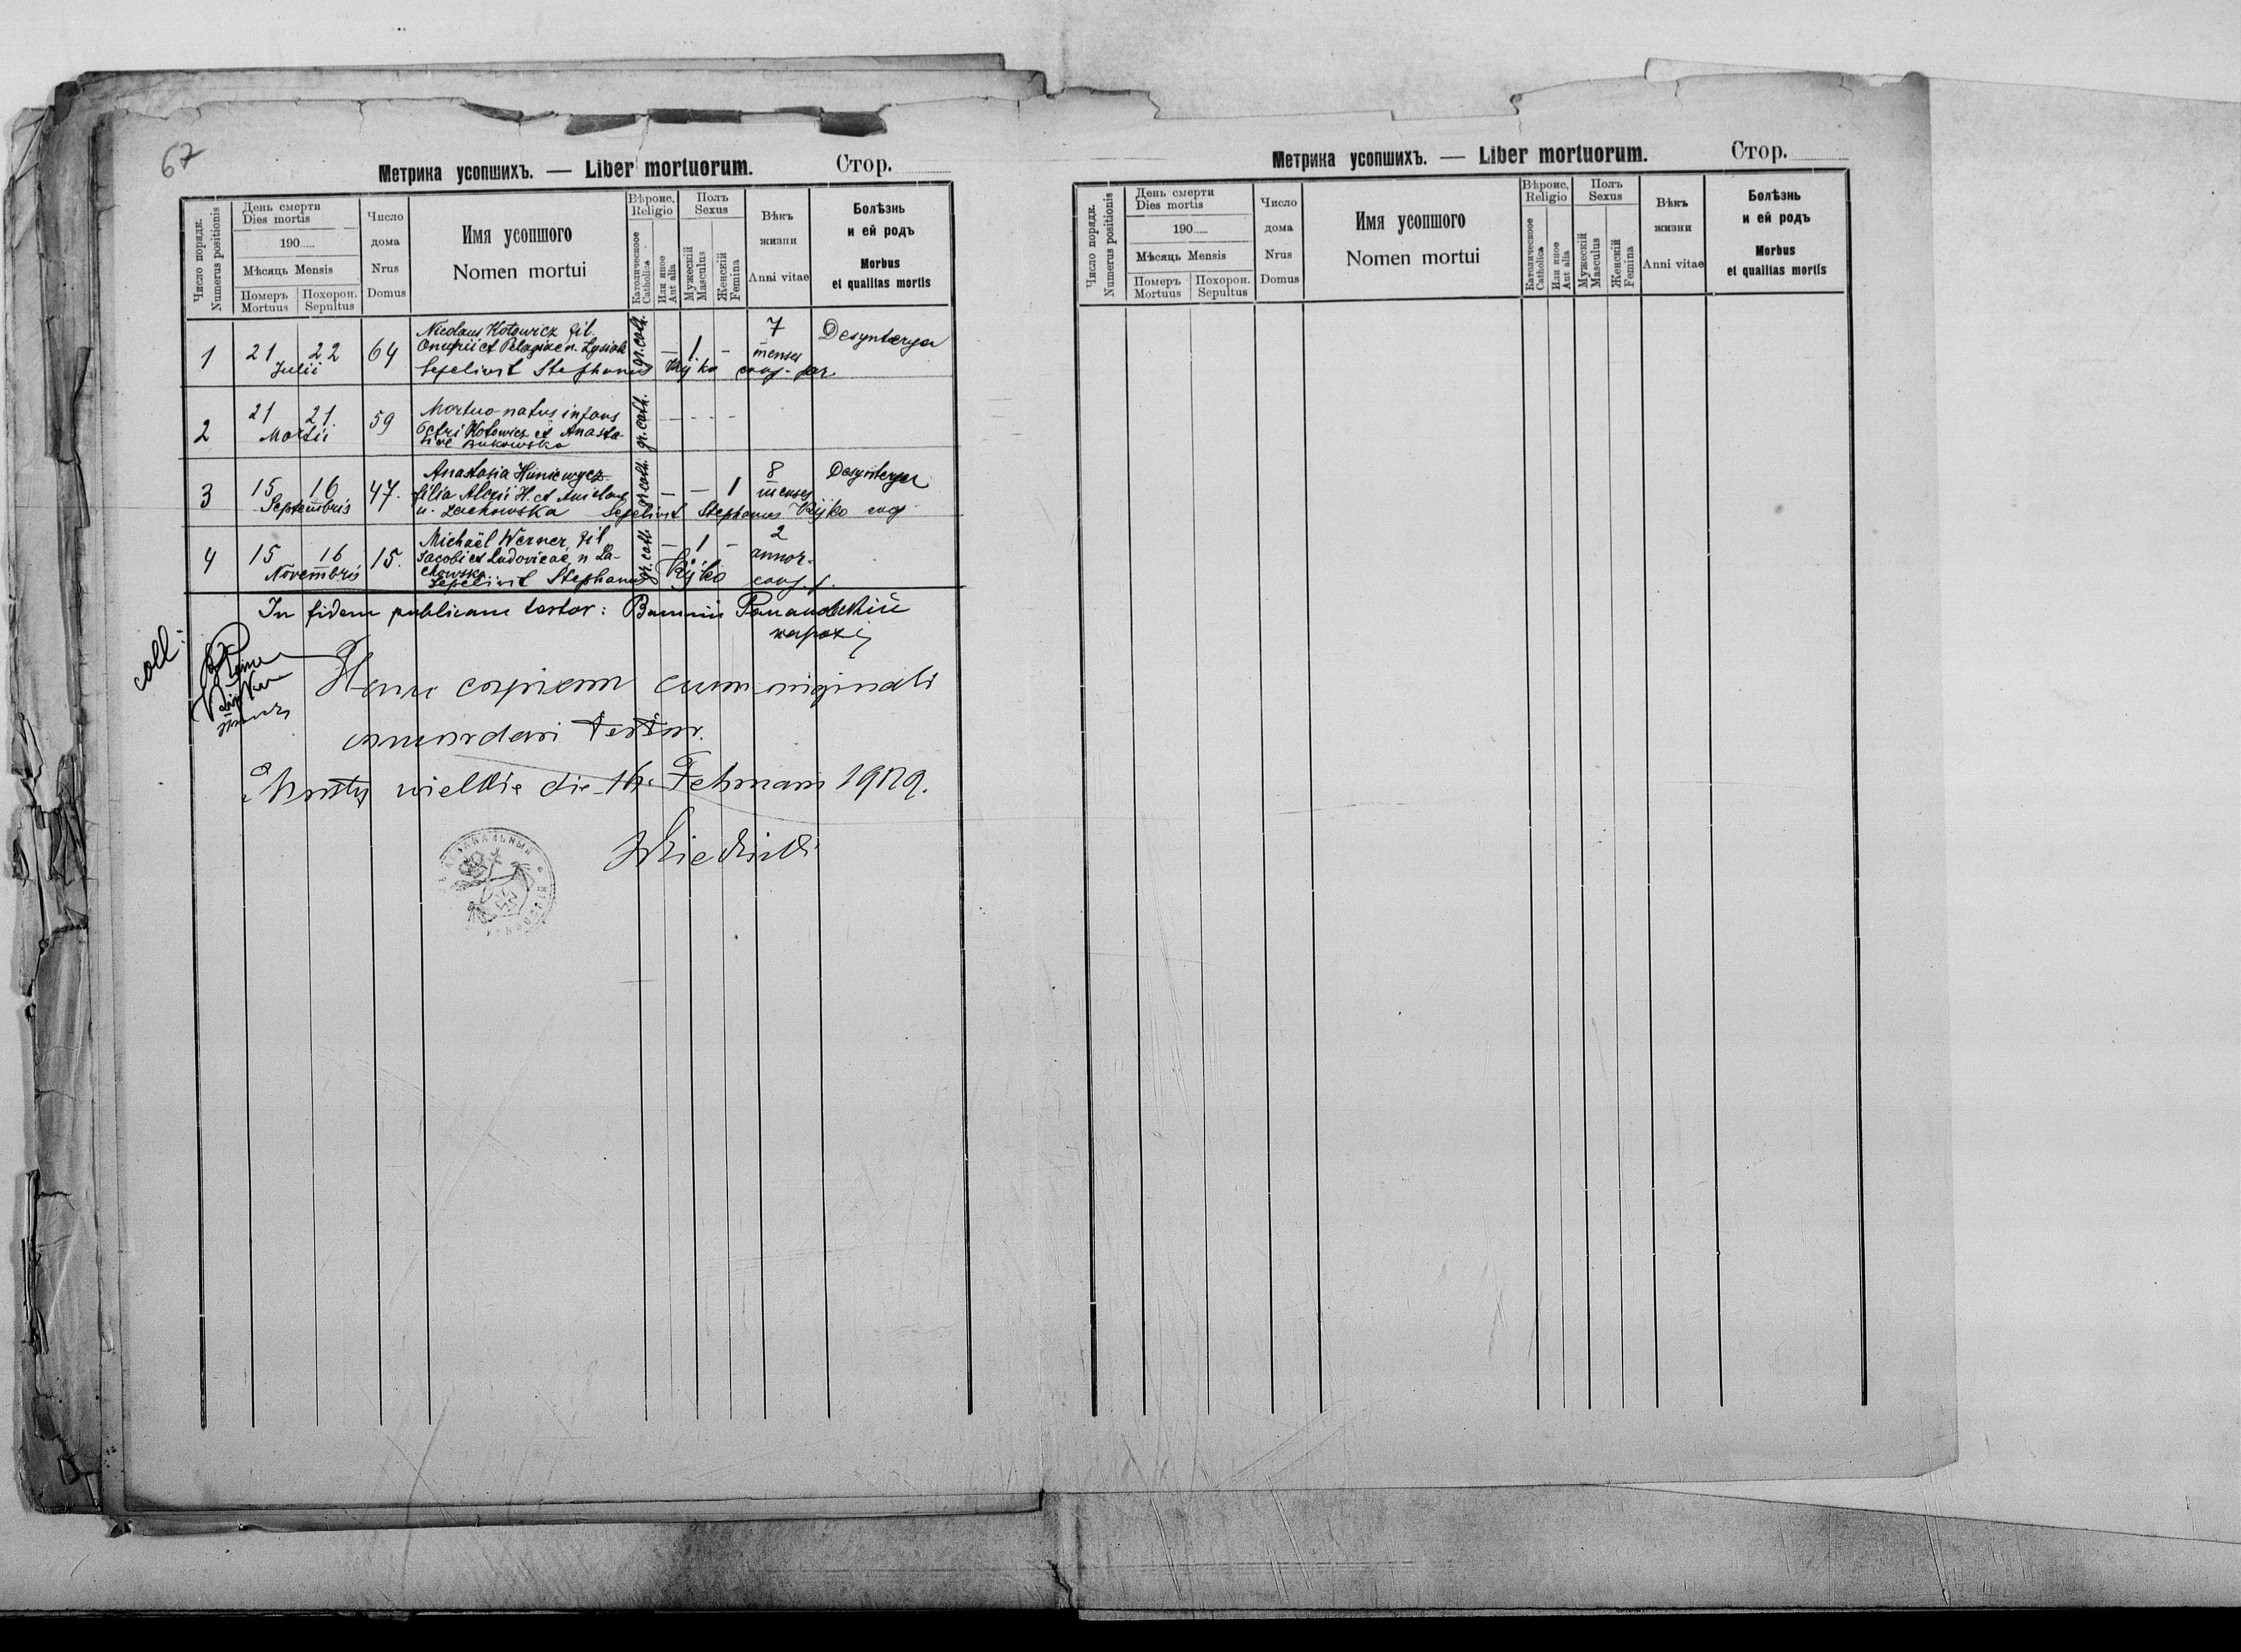 67
Метрика усопшихъ. — Liber mortuorum. Стор.
Число порядк. Numerus positionis
День смерти
Dies mortis
190
Мѣсяць Mensis
Померъ Mortuus
Похорон. Sepultus
Число дома Nrus Domus
Имя усопшого
Nomen mortui
Вѣроис. Religio
Католическоое Catholica
Или иное Aut alia
Полъ Sexus
Мужескій Masculus
Женскій Femina
Вѣкъ жизни Anni vitae
Болѣзнь и ей родъ
Morbus et qualitas mortis
1 21 22 64 Nicolaus Kotowicz fil. gr. cath. — 1 — 7 Desynterya
Julii Onufrii et Pelagiae n. Lysiak menses
Sepelivit Stephanus Kyjko coop. par.
2 21 21 59 Mortuo-natus infans gr. cath. — - - —
Martii Petri Kotowicz et Anasta-
siae Bukowska
3 15 16 47. Anastasia Huniewycz gr. cath. — — 1 8 Desynterya
Septembris filia Alexii H. et Anielae menses
n. Lachowska Sepelivit Stephanus Kyjko
4 15 16 15. Michaël Werner, fil gr. cath. — 1 — 2
Novembris Jacobi et Ludovicae n La- annor.
chowska
Sepelivit Stephanus Kyjko
In fidem publicam testor:
coll:
Hanc copiam cum originali
concordari testor.
Mosty wielkie die 16. Februarii 1909.
Метрика усопшихъ. — Liber mortuorum. Стор.
Число порядк. Numerus positionis
День смерти
Dies mortis
190
Мѣсяць Mensis
Померъ Mortuus
Похорон. Sepultus
Число дома Nrus Domus
Имя усопшого
Nomen mortui
Вѣроис. Religio
Католическоое Catholica
Или иное Aut alia
Полъ Sexus
Мужескій Masculus
Женскій Femina
Вѣкъ жизни Anni vitae
Болѣзнь и ей родъ
Morbus et qualitas mortis